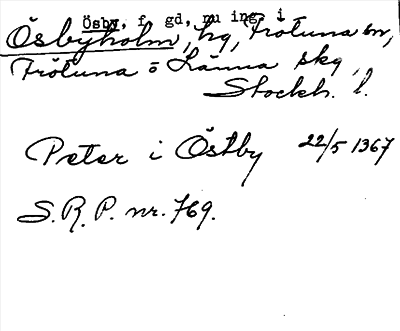 Ösby, f gd, nu ing i
Ösbyholm, hg, Frötuna sn,
Frötuna o Länna skg,
Stockh. l.
Peter i Östby 22/5 1367
S.R.P. nr. 769.